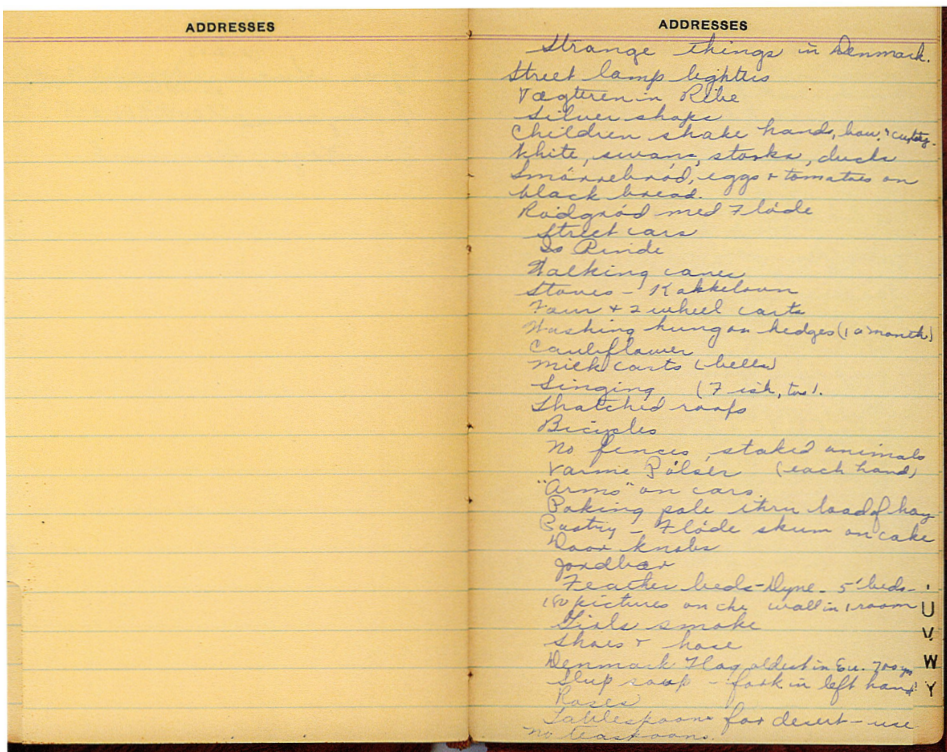 ADDRESSES
ADDRESSES
Strange things in Denmark.
Street lamp lighters
Vægteren in Ribe
Silver shops
Children shake hands, bow, + curtsy.
White, swans, storks, ducks
Smórrebród, eggs + tomatoes on
black bread.
Ródgród med Flóde
Street cars
Is Pinde
Walking canes
Stoves - Kakkelovn
Four + 2 wheel carts
Washing hung on hedges (1 a month)
Cauliflower
Milk carts (bells)
Singing (Fish, too).
Thatched roofs
Bicycles
No fences, staked animals
Varme Pólser (each hand)
"Arms" on cars.
Poking pole thru load of hay
Pastry - Flóde skum on cake
Door knobs
Jordbær
Feather beds - Dyne - 5' beds -
150 pictures on the wall in 1 room
Girls smoke
Shoes + hose
Denmark Flag oldest in Eu. 700 yr
Slup soup - fork in left hand
Roses
Tablespoons for desert - use
no teaspoons.
U
V
W
Y